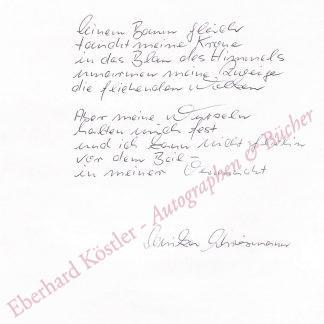 Einem Baum gleich
taucht meine Krone
in das Blau des Himmels
umarmen meine Zweige
die fliehenden Wolken
Aber meine Wurzeln
halten mich fest
und ich kann nicht fliehn
vor dem Beil –
in meinem
Eberhard Köstler - Autographen & Bücher